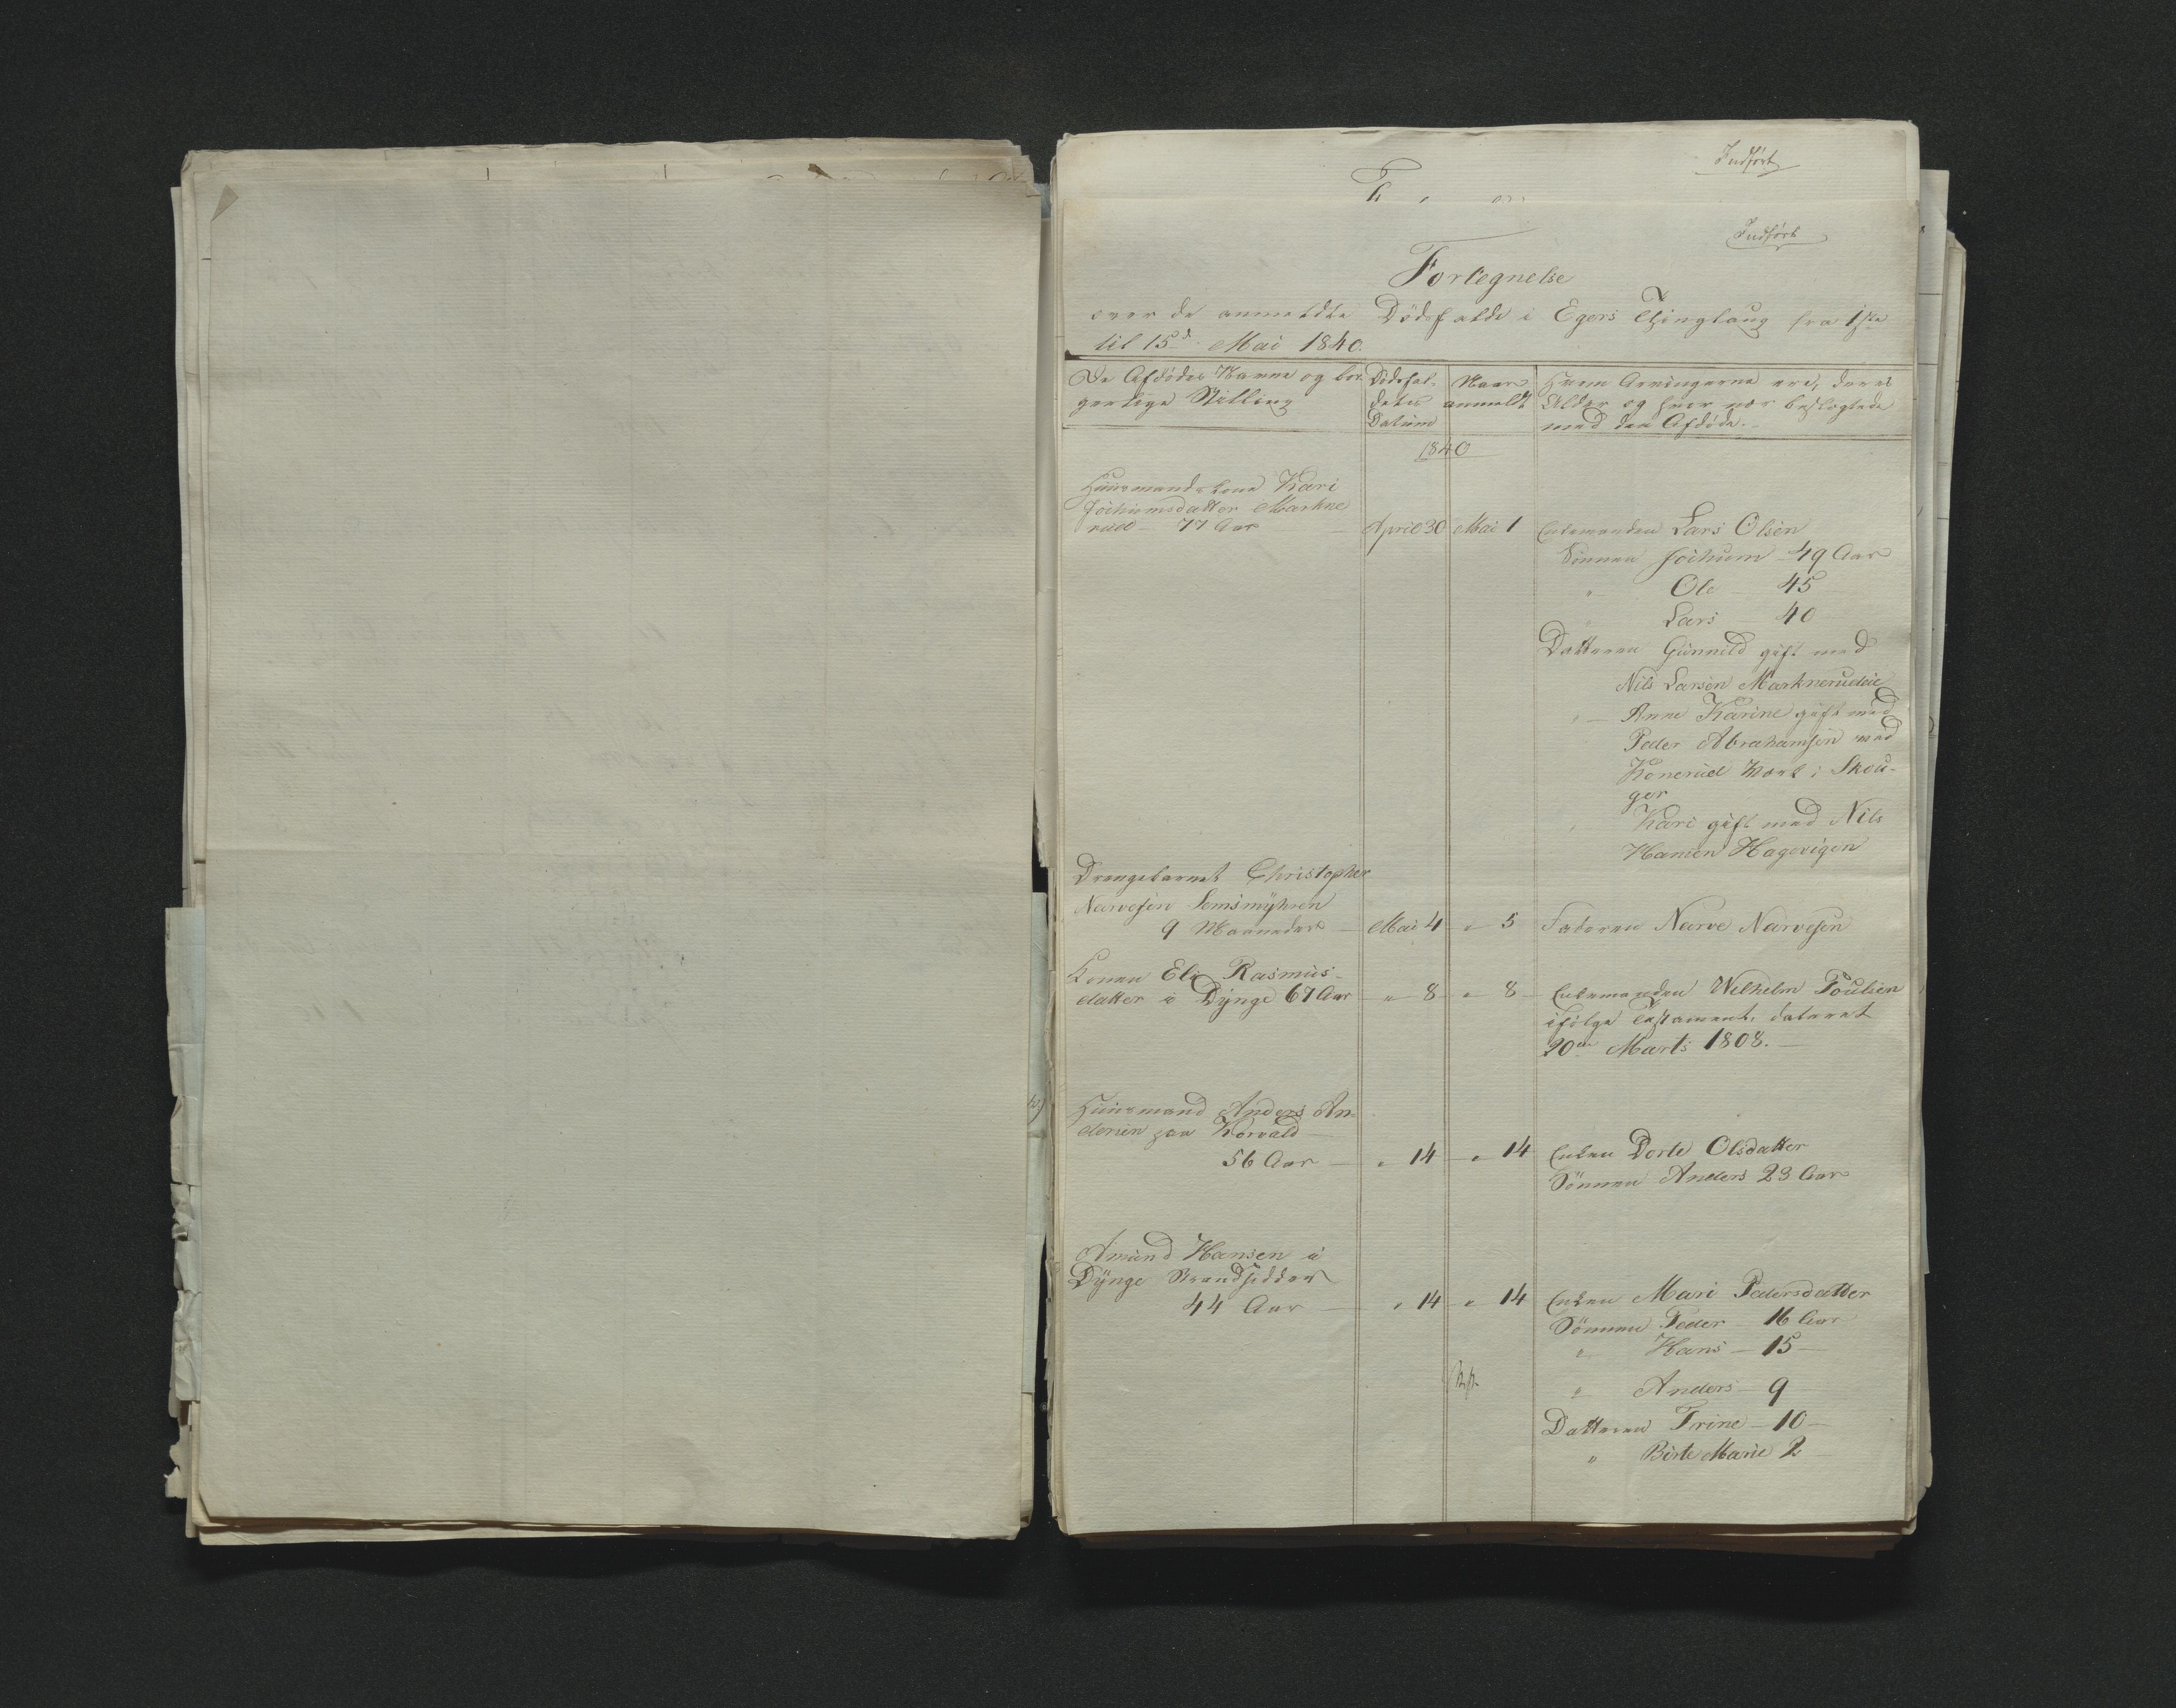 Indført
Indført
Fortegnelse
over de anmeldte Dödsfalde i Egers Thinglaug fra 1ste
til 15de Mai 1840.
De Afdödes Navne og bor-
gerlige Stilling
Dödsfal-
dets
Datum
Naar
anmeldt
Hvem Arvingerne ere, deres
Alder og hvor nær beslægtede
med den Afdöde.
1840
Huusmandskone Kari
Jochumsdatter Markne
rud 77 Aar
April 30
Mai 1
Enkemanden Lars Olsen
Sönnen Jochum 49 Aar
" Ole 45
Lars 40
Datteren Gunnild gift med
Nils Larsen Marknerudeie
" Anne Karine gift med
Peder Abrahamsen ved
Konerud Værk i Skou-
ger
" Kari gift med Nils
Hansen Hagevigen
Drengebarnet Christopher
Narvesen Semsmyhren
9 Maaneder
Mai 4
" 5
Faderen Narve Narvesen
Konen Eli Rasmus-
datter i Dynge 67 Aar
" 8
" 8
Enkemanden Wilhelm Poulsen
ifölge Testament, dateret
20de Marts 1808.
Huusmand Anders An-
dersen paa Horvald
56 Aar
" 14
" 14
Enken Dorte Olsdatter
Sönnen Anders 23 Aar
Amund Hansen i
Dynge Strandsidder
44 Aar
" 14
" 14
Enken Mari Pedersdatter
Sönnen Peder 16 Aar
" Hans 15
" Anders 9
Datteren Trine 10
" Birte Marie 2